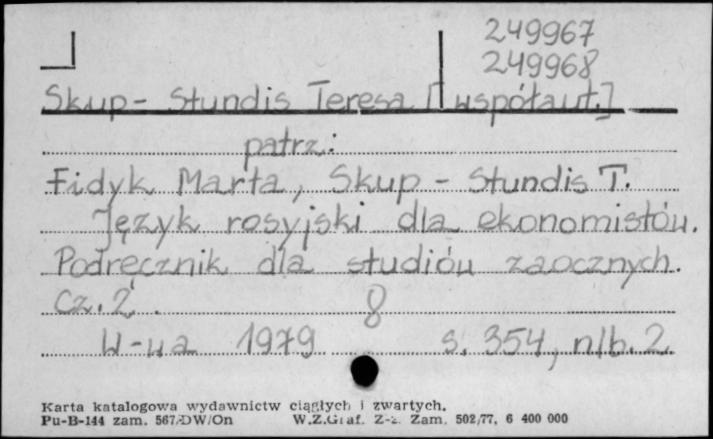 249967
249968
Skup - Stundis Teresa [współaut.]
patrz:
Fidyk Marta, Skup - Stundis T.
Język rosyjski dla ekonomistów.
Podręcznik dla studiów zaocznych.
Cz. 2. 8
W-wa 1979 s. 354, nlb. 2
Karta katalogowa wydawnictw ciągłych i zwartych.
Pu-B-144 zam. 567/DW/On W.Z.Graf. Z-z. Zam. 502/77. 6 400 000